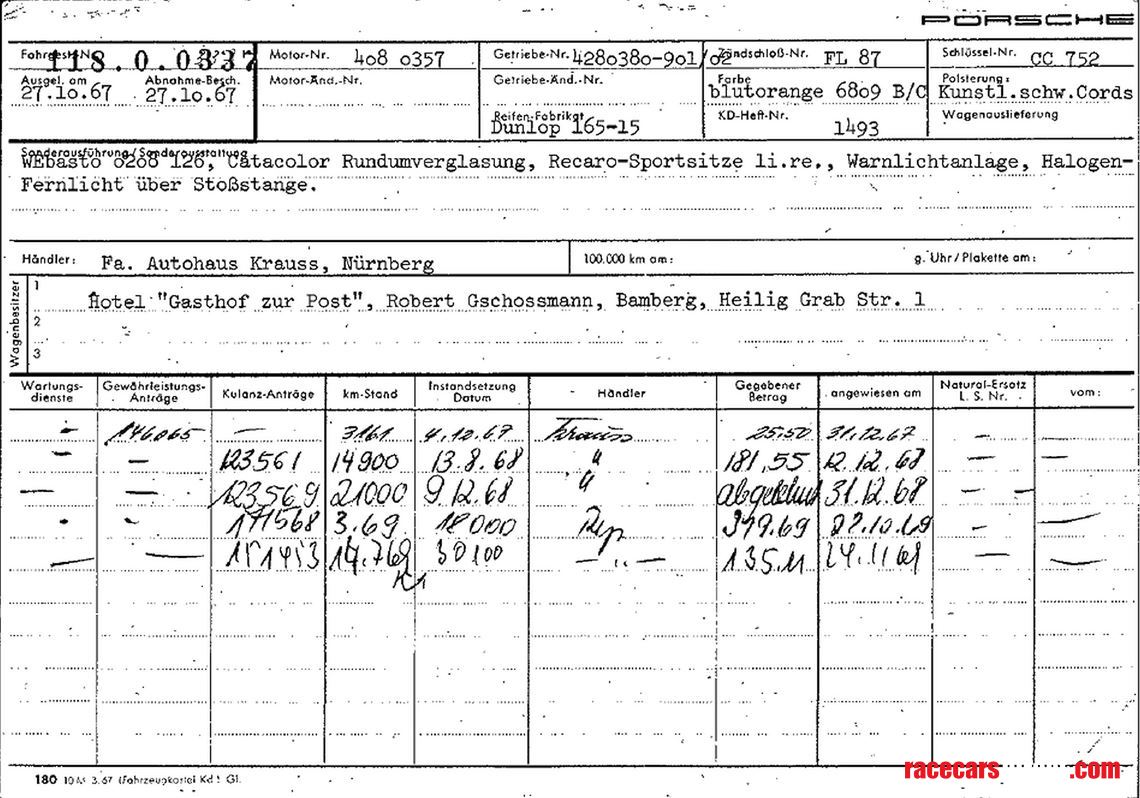 PORSCHE
Fahrgest.Nr. 118.0.0337 Motor-Nr. 4o8 o357 Getriebe-Nr. 428o38o-9o1/o2 Zündschloß-Nr. FL 87 Schlüssel-Nr. CC 752
Ausgel. am Abnahme-Besch. Motor-Änd.-Nr. Getriebe-Änd.-Nr. Farbe Polsterung:
27.1o.67 27.1o.67 blutorange 68o9 B/C Kunstl.schw.Cords
Reifen-Fabrikat KD-Heft-Nr. Wagenauslieferung
Dunlop 165-15 1493
Sonderausführung / Sonderausstattung
WEbasto o2oo 126, Catacolor Rundumverglasung, Recaro-Sportsitze li.re., Warnlichtanlage, Halogen-
Fernlicht über Stoßstange.
Händler: Fa. Autohaus Krauss, Nürnberg 100.000 km am: g. Uhr / Plakette am:
Wagenbesitzer
1 Hotel "Gasthof zur Post", Robert Gschossmann, Bamberg, Heilig Grab Str. 1
2
3
Wartungs-dienste Gewährleistungs-Anträge Kulanz-Anträge km-Stand Instandsetzung Datum Händler Gegebener Betrag angewiesen am Natural-Ersatz L. S. Nr. vom:
- 146065 - 3161 4.12.67 Krauss 25.50 31.12.67 - -
- - 123561 14900 13.8.68 " 181,55 12.12.68 - -
- - 123569 21000 9.12.68 " 31.12.68 - -
- - 171568 3.69 18000 Rep 22.10.69 - -
- - 14.7.69 30100 - " - 135.11 24.11.69 - -
180 3.67 (Fahrzeugkartei Kd) Gl.
racecars .com